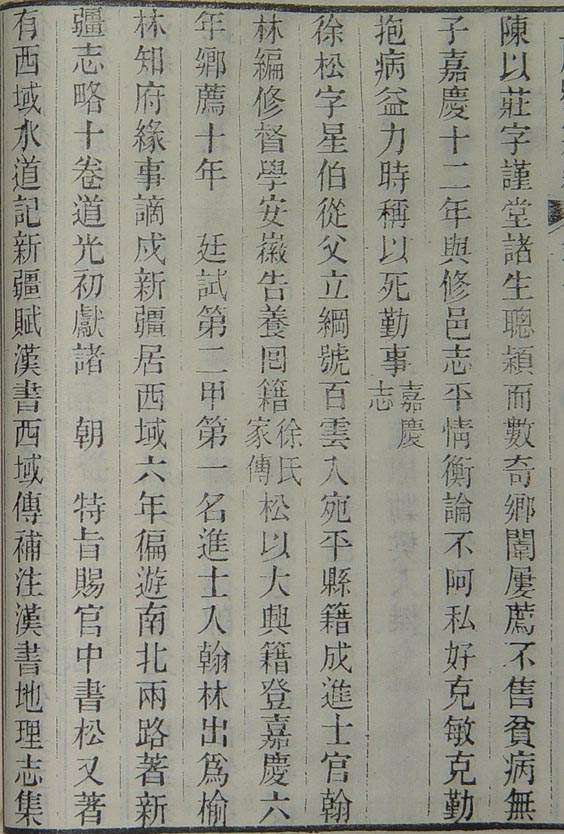 陳以莊字謹堂諸生聰穎而數奇鄉闈屢薦不售貧病無
子嘉慶十二年與修邑志平情衡論不阿私好克敏克勤
抱病益力時稱以死勤事嘉慶志
徐松字星伯從父立綱號百雲入宛平縣籍成進士官翰
林編修督學安徽告養囘籍徐氏家傳松以大興籍登嘉慶六
年鄉薦十年 廷試第二甲第一名進士入翰林出爲榆
林知府緣事謫戍新疆居西域六年徧遊南北兩路著新
疆志略十卷道光初獻諸 朝 特旨賜官中書松又著
有西域水道記新疆賦漢書西域傳補注漢書地理志集